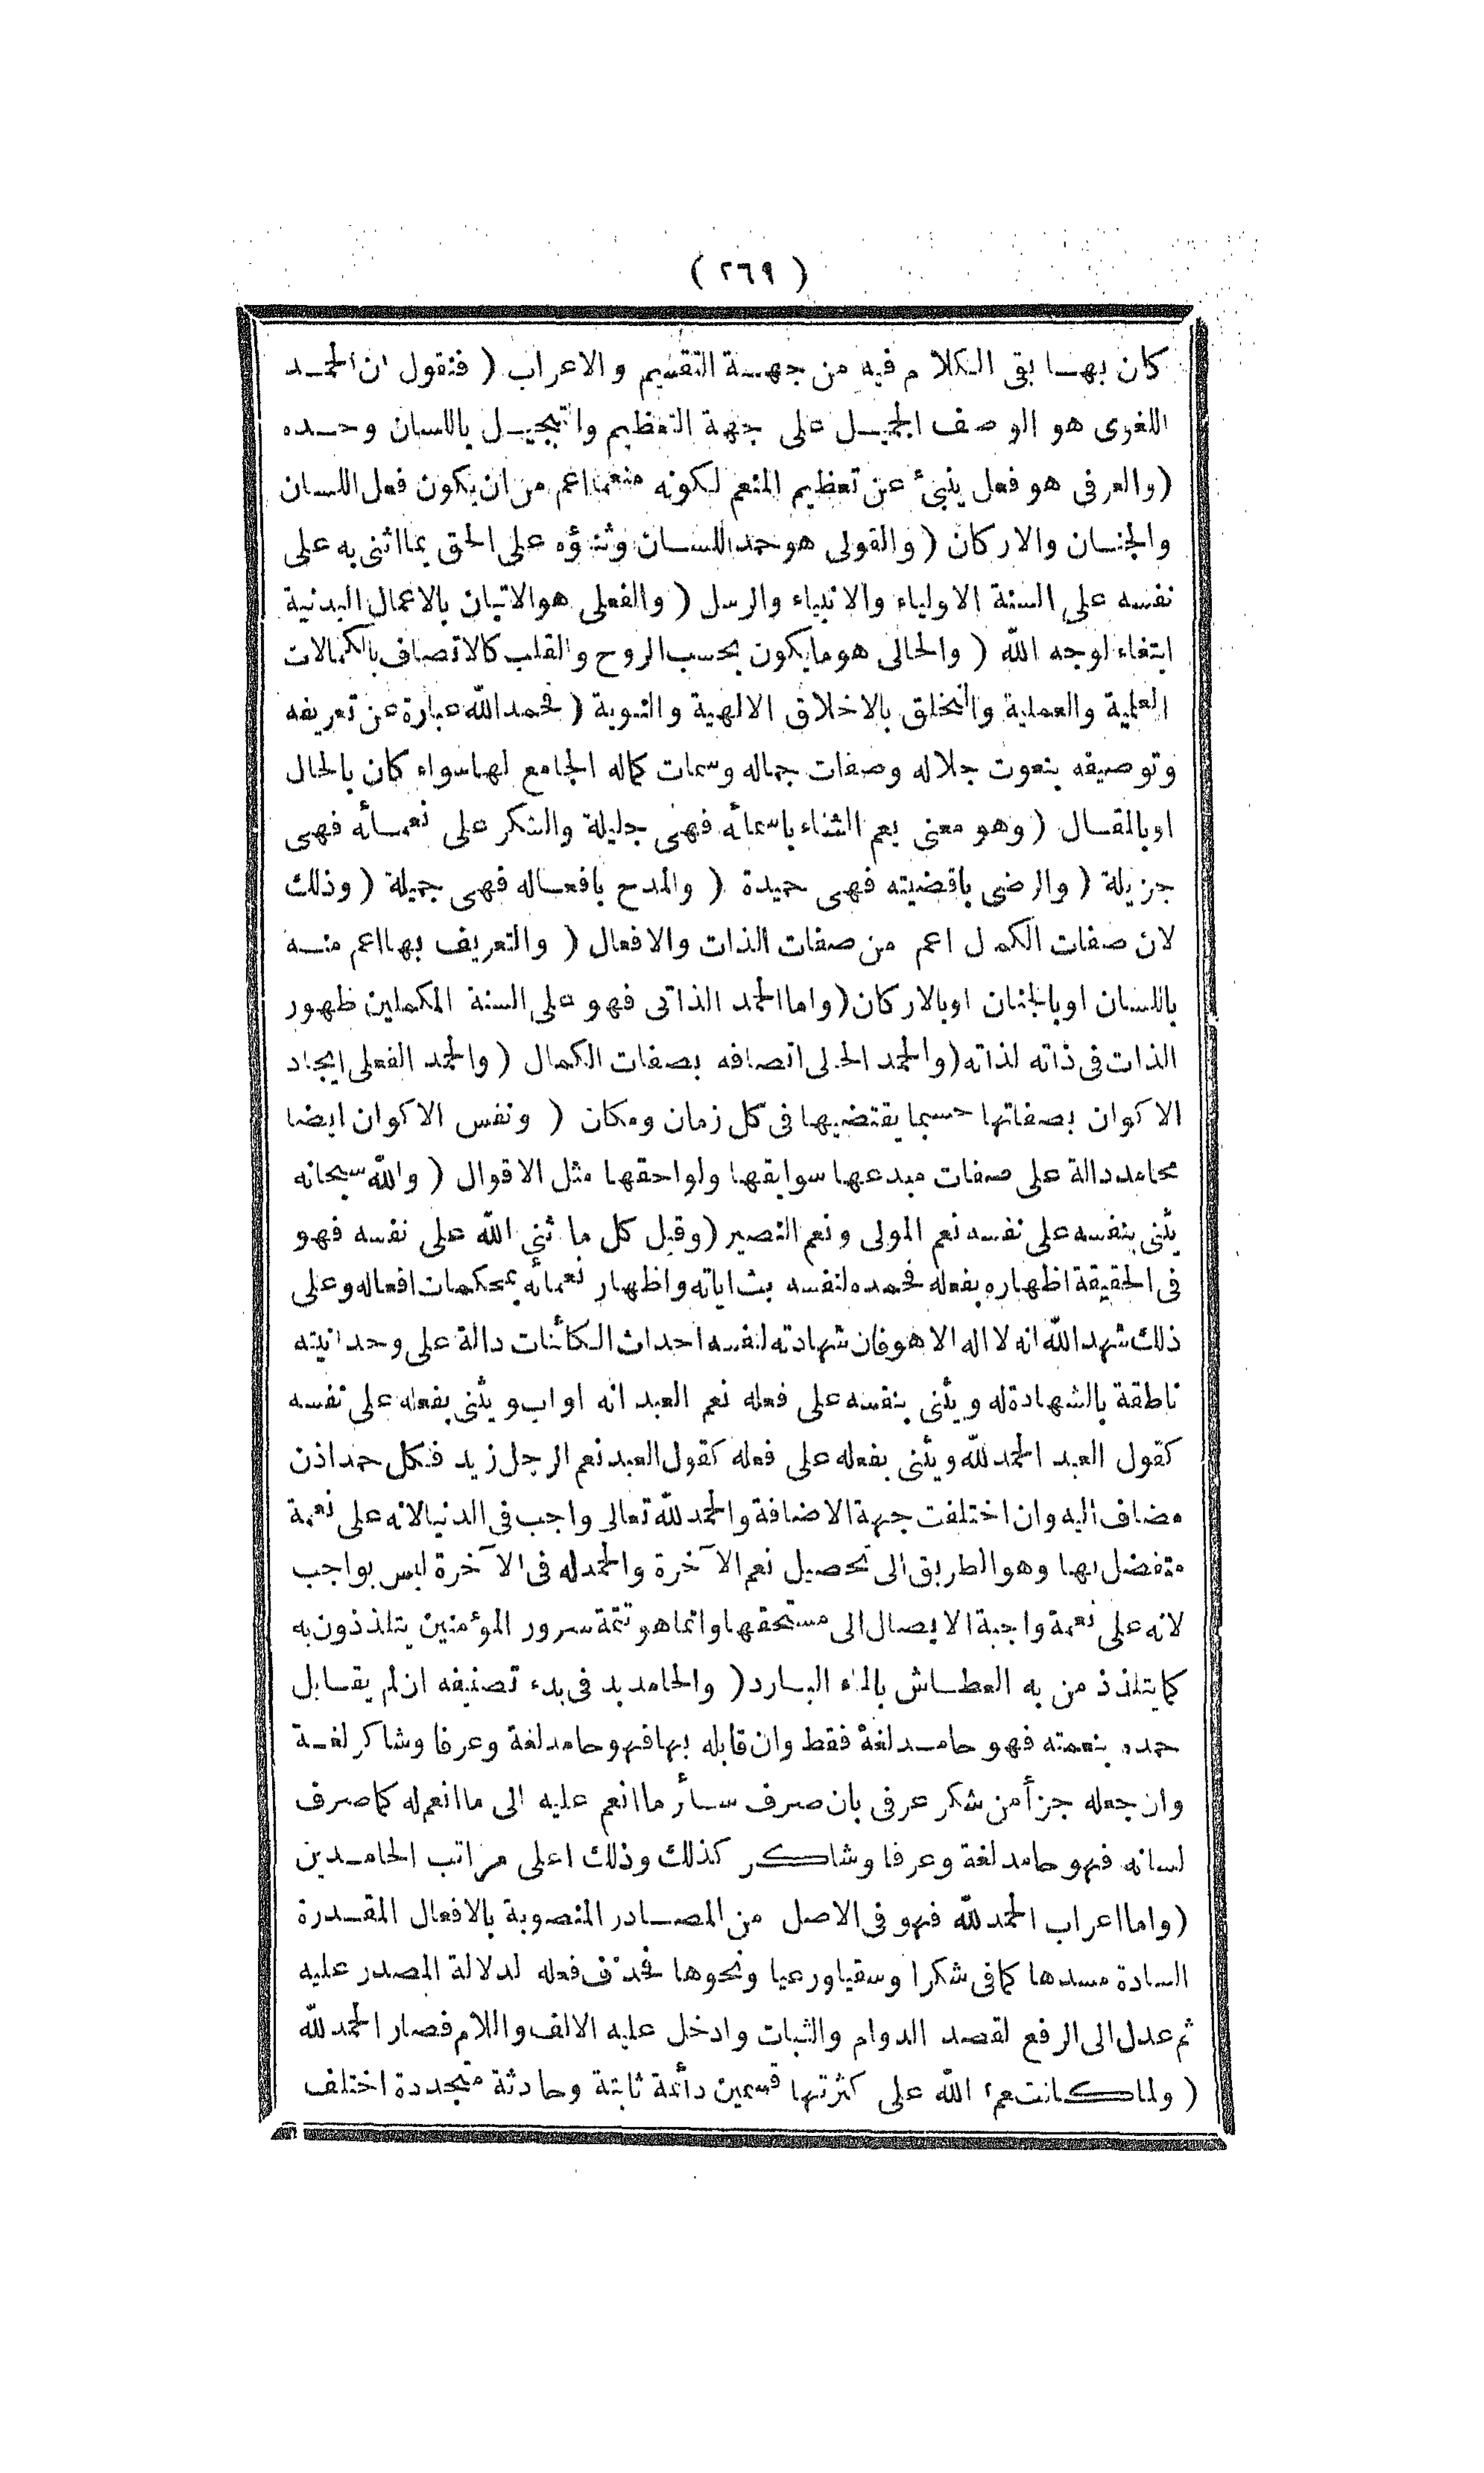 ( ٢٦٩ )
كان بهـا بقى الكلام فيه من جهـة التقسيم والاعراب ( فنقول ان الحمـد
اللغوى هو الوصف الجميـل على جهة التعظيم والتبجيـل باللسان وحـده
(والعرفى هو فعل ينبئ عن تعظيم المنعم لكونه منعما اعم من ان يكون فعل اللسان
والجنـان والاركان (والقولى هو حمد اللسـان وثنؤه على الحق بما اثنى به على
نفسه على السنة الاولياء والانبياء والرسل ( والفعلى هو الاتيان بالاعمال البدنية
ابتغاء لوجه الله ( والحالى هو ما يكون بحسب الروح والقلب كالاتصاف بالكمالات
العلمية والعملية والتخلق بالاخلاق الالهية والنبوية ( فحمد الله عبارة عن تعريفه
وتوصيفه بنعوت جلاله وصفات جماله وسمات كماله الجامع لها سواء كان بالحال
او بالمقـال ( وهو معنى يعم الثناء باسمائه فهى جليلة والشكر على نعمـائه فهى
جزيلة ( والرضى باقضيته فهى حميدة ( والمدح بافعـاله فهى جميلة ( وذلك
لان صفات الكمال اعم من صفات الذات والافعال ( والتعريف بها اعم منـه
باللسان او بالجنان او بالاركان (واما الحمد الذاتى فهو على السنة المكملين ظهور
الذات فى ذاته لذاته (والحمد الحالى اتصافه بصفات الكمال ( والحمد الفعلى ايجاد
الاكوان بصفاتها حسبما يقتضيها فى كل زمان ومكان ( ونفس الاكوان ايضا
محامد دالة على صفات مبدعها سوابقها ولواحقها مثل الاقوال ( والله سبحانه
يثنى بنفسه على نفسه نعم المولى ونعم النصير (وقيل كل ما اثنى الله على نفسه فهو
فى الحقيقة اظهاره بفعله فحمده لنفسه بث اياته واظهار نعمائه بمحكمات افعاله وعلى
ذلك شهد الله انه لا اله الا هو فان شهادته لنفسه احداث الكائنات دالة على وحدانيته
ناطقة بالشهادة له ويثنى بنفسه على فعله نعم العبد انه اواب ويثنى بفعله على نفسه
كقول العبد الحمد لله ويثنى بفعله على فعله كقول العبد نعم الرجل زيد فكل حمد اذن
مضاف اليه وان اختلفت جهة الاضافة والحمد لله تعالى واجب فى الدنيا لانه على نعمة
متفضل بها وهو الطريق الى تحصيل نعم الآخرة والحمد له فى الآخرة ليس بواجب
لانه على نعمة واجبة الايصال الى مستحقها وانما هو تتمة سرور المؤمنين يتلذذون به
كما يتلذذ من به العطـاش بالماء البـارد( والحامد بد فى بدء تصنيفه ان لم يقـابل
حمده بنعمته فهو حامـد لغة فقط وان قابله بها فهو حامد لغة وعرفا وشاكر لغـة
وان جعله جزأ من شكر عرفى بان صرف سـائر ما انعم عليه الى ما انعم له كما صرف
لسانه فهو حامد لغة وعرفا وشاكـر كذلك وذلك اعلى مراتب الحامـدين
(واما اعراب الحمد لله فهو فى الاصل من المصـادر المنصوبة بالافعال المقـدرة
السادة مسدها كما فى شكرا وسقيا ورعيا ونحوها فحذف فعله لدلالة المصدر عليه
ثم عدل الى الرفع لقصد الدوام والثبات وادخل عليه الالف واللام فصار الحمد لله
( ولما كـانت نعم الله على كثرتها قسمين دائمة ثابتة وحادثة متجددة اختلف